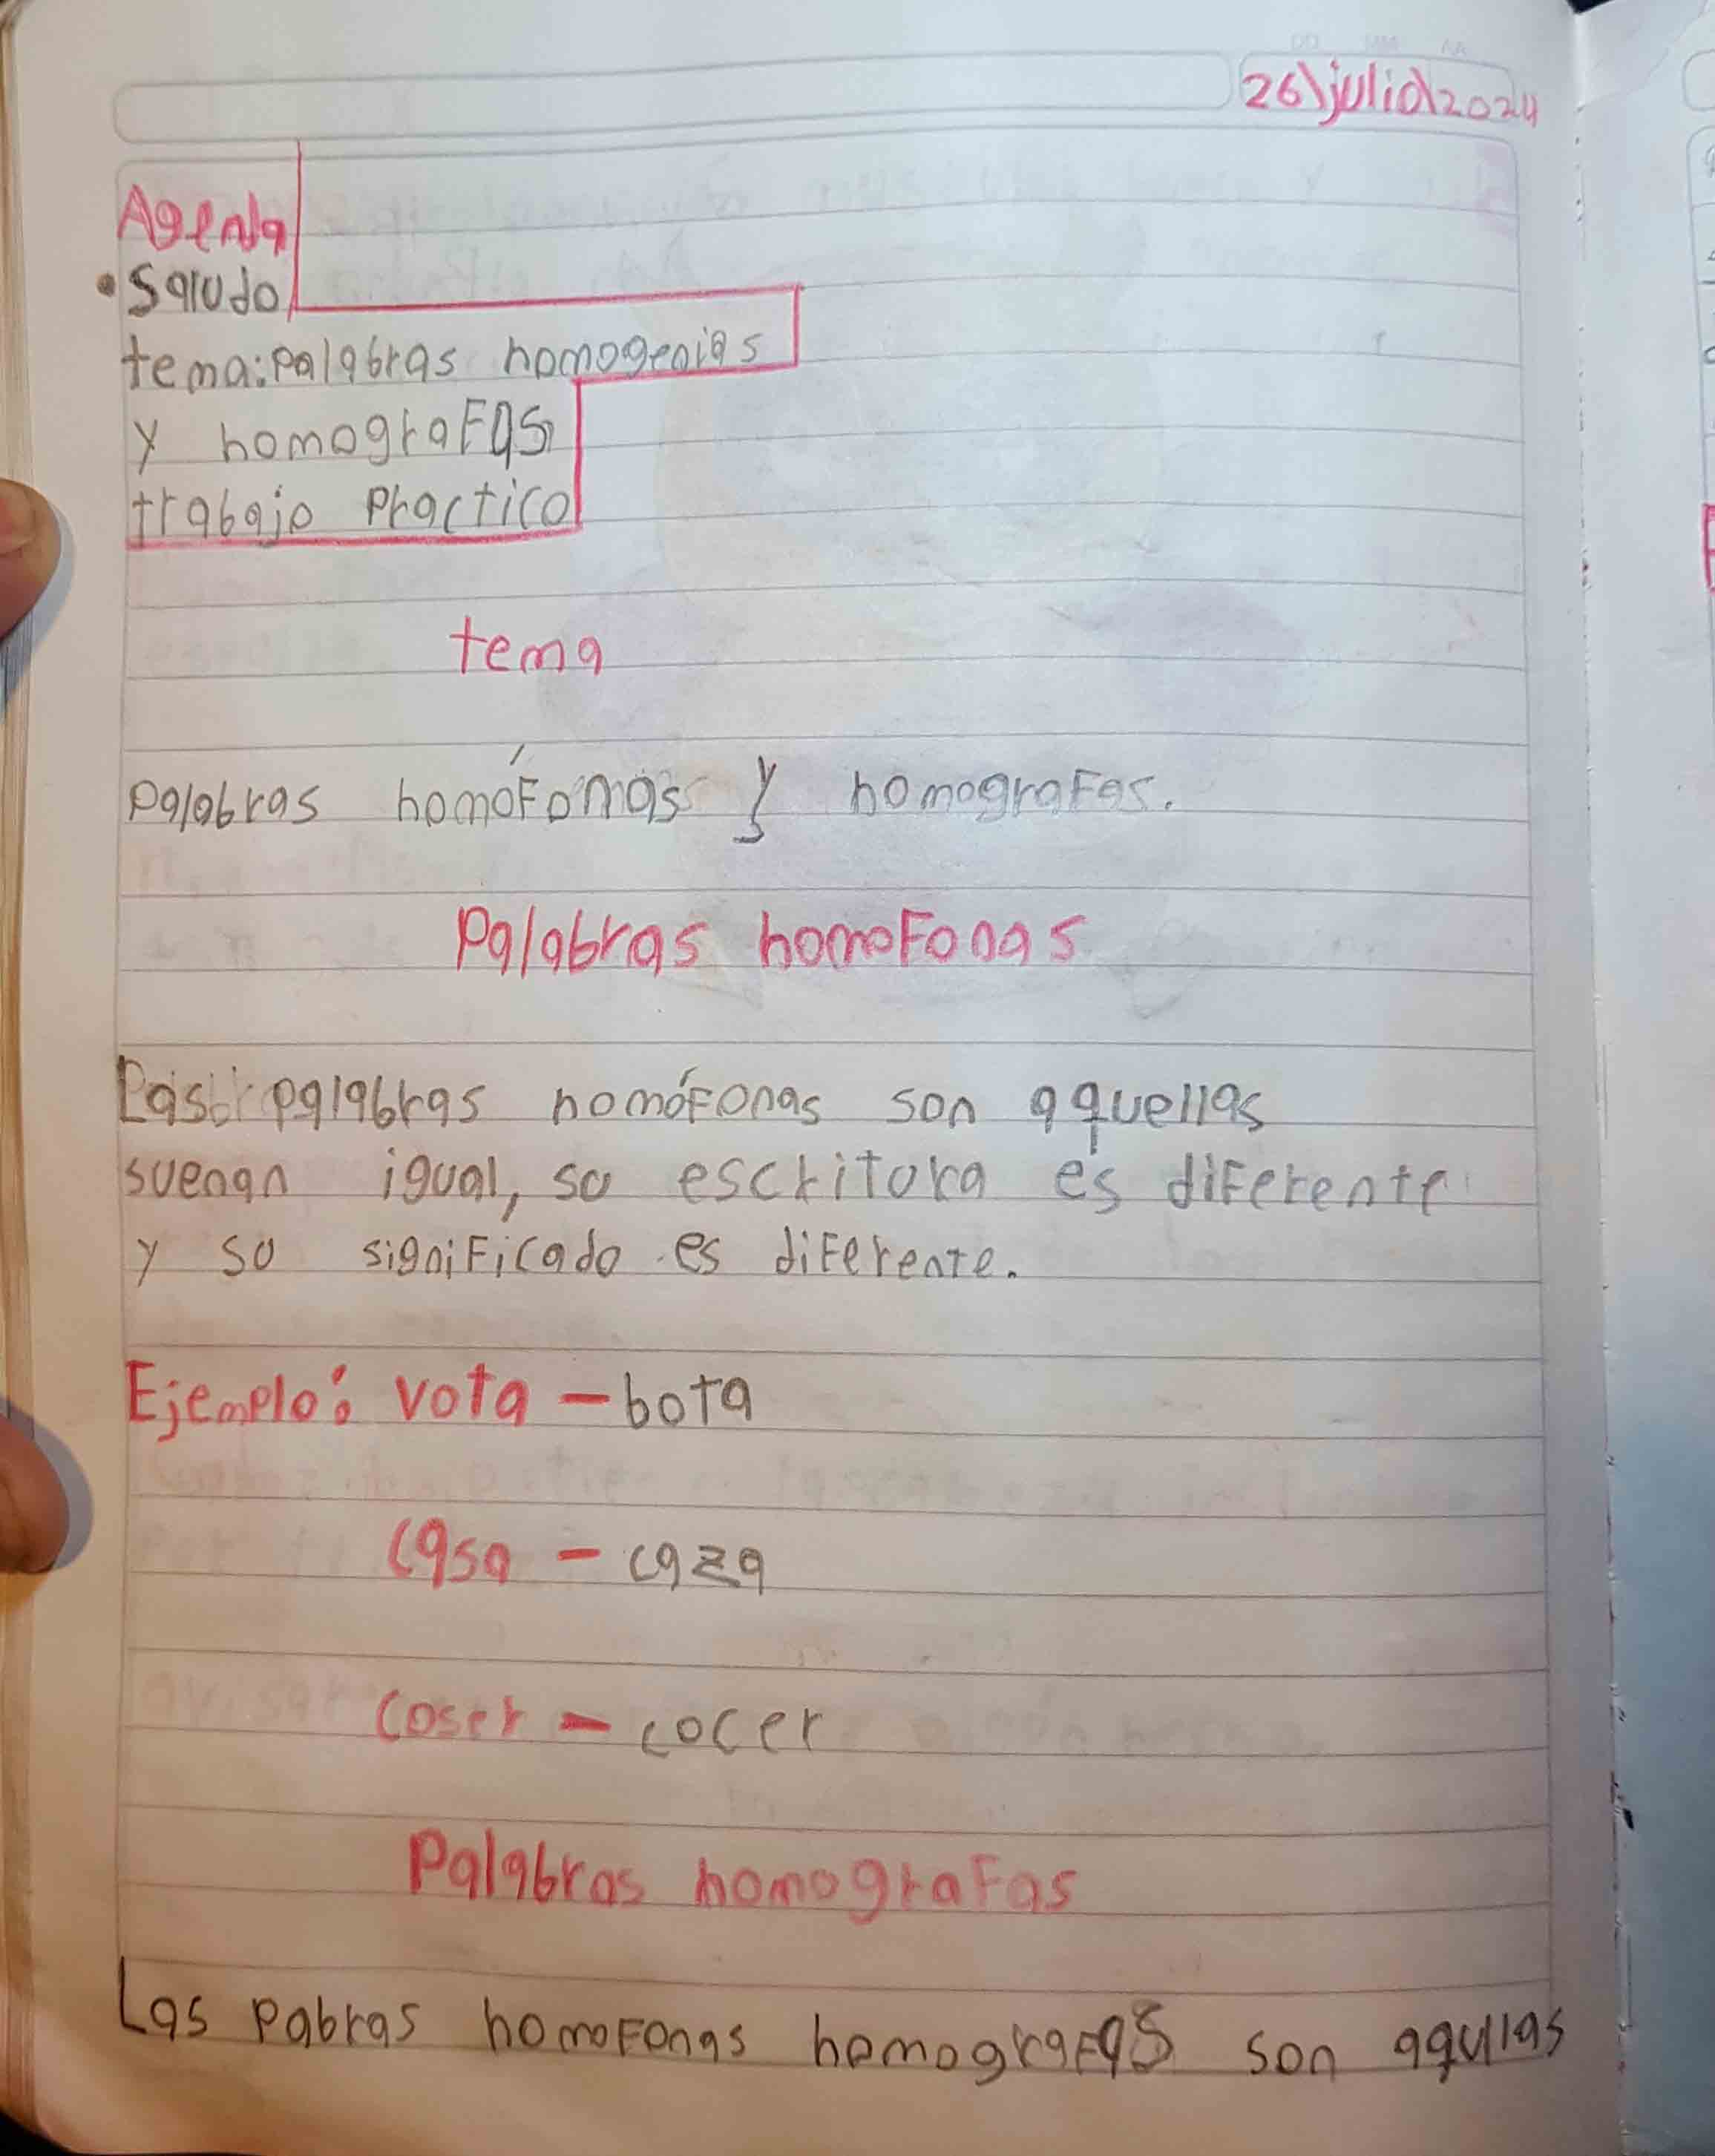 26\julio\2024
Agenda
• Saludo
tema: palabras homogenias
y homografas
trabajo practico
tema
palabras homófomas y homografas.
Palabras homofonas
Las palabras homófonas son aquellas
suenan igual, su escritura es diferente
y su significado es diferente.
Ejemplo: vota - bota
casa - caza
coser - cocer
Palabras homografas
Las pabras homofonas homografas son aqullas